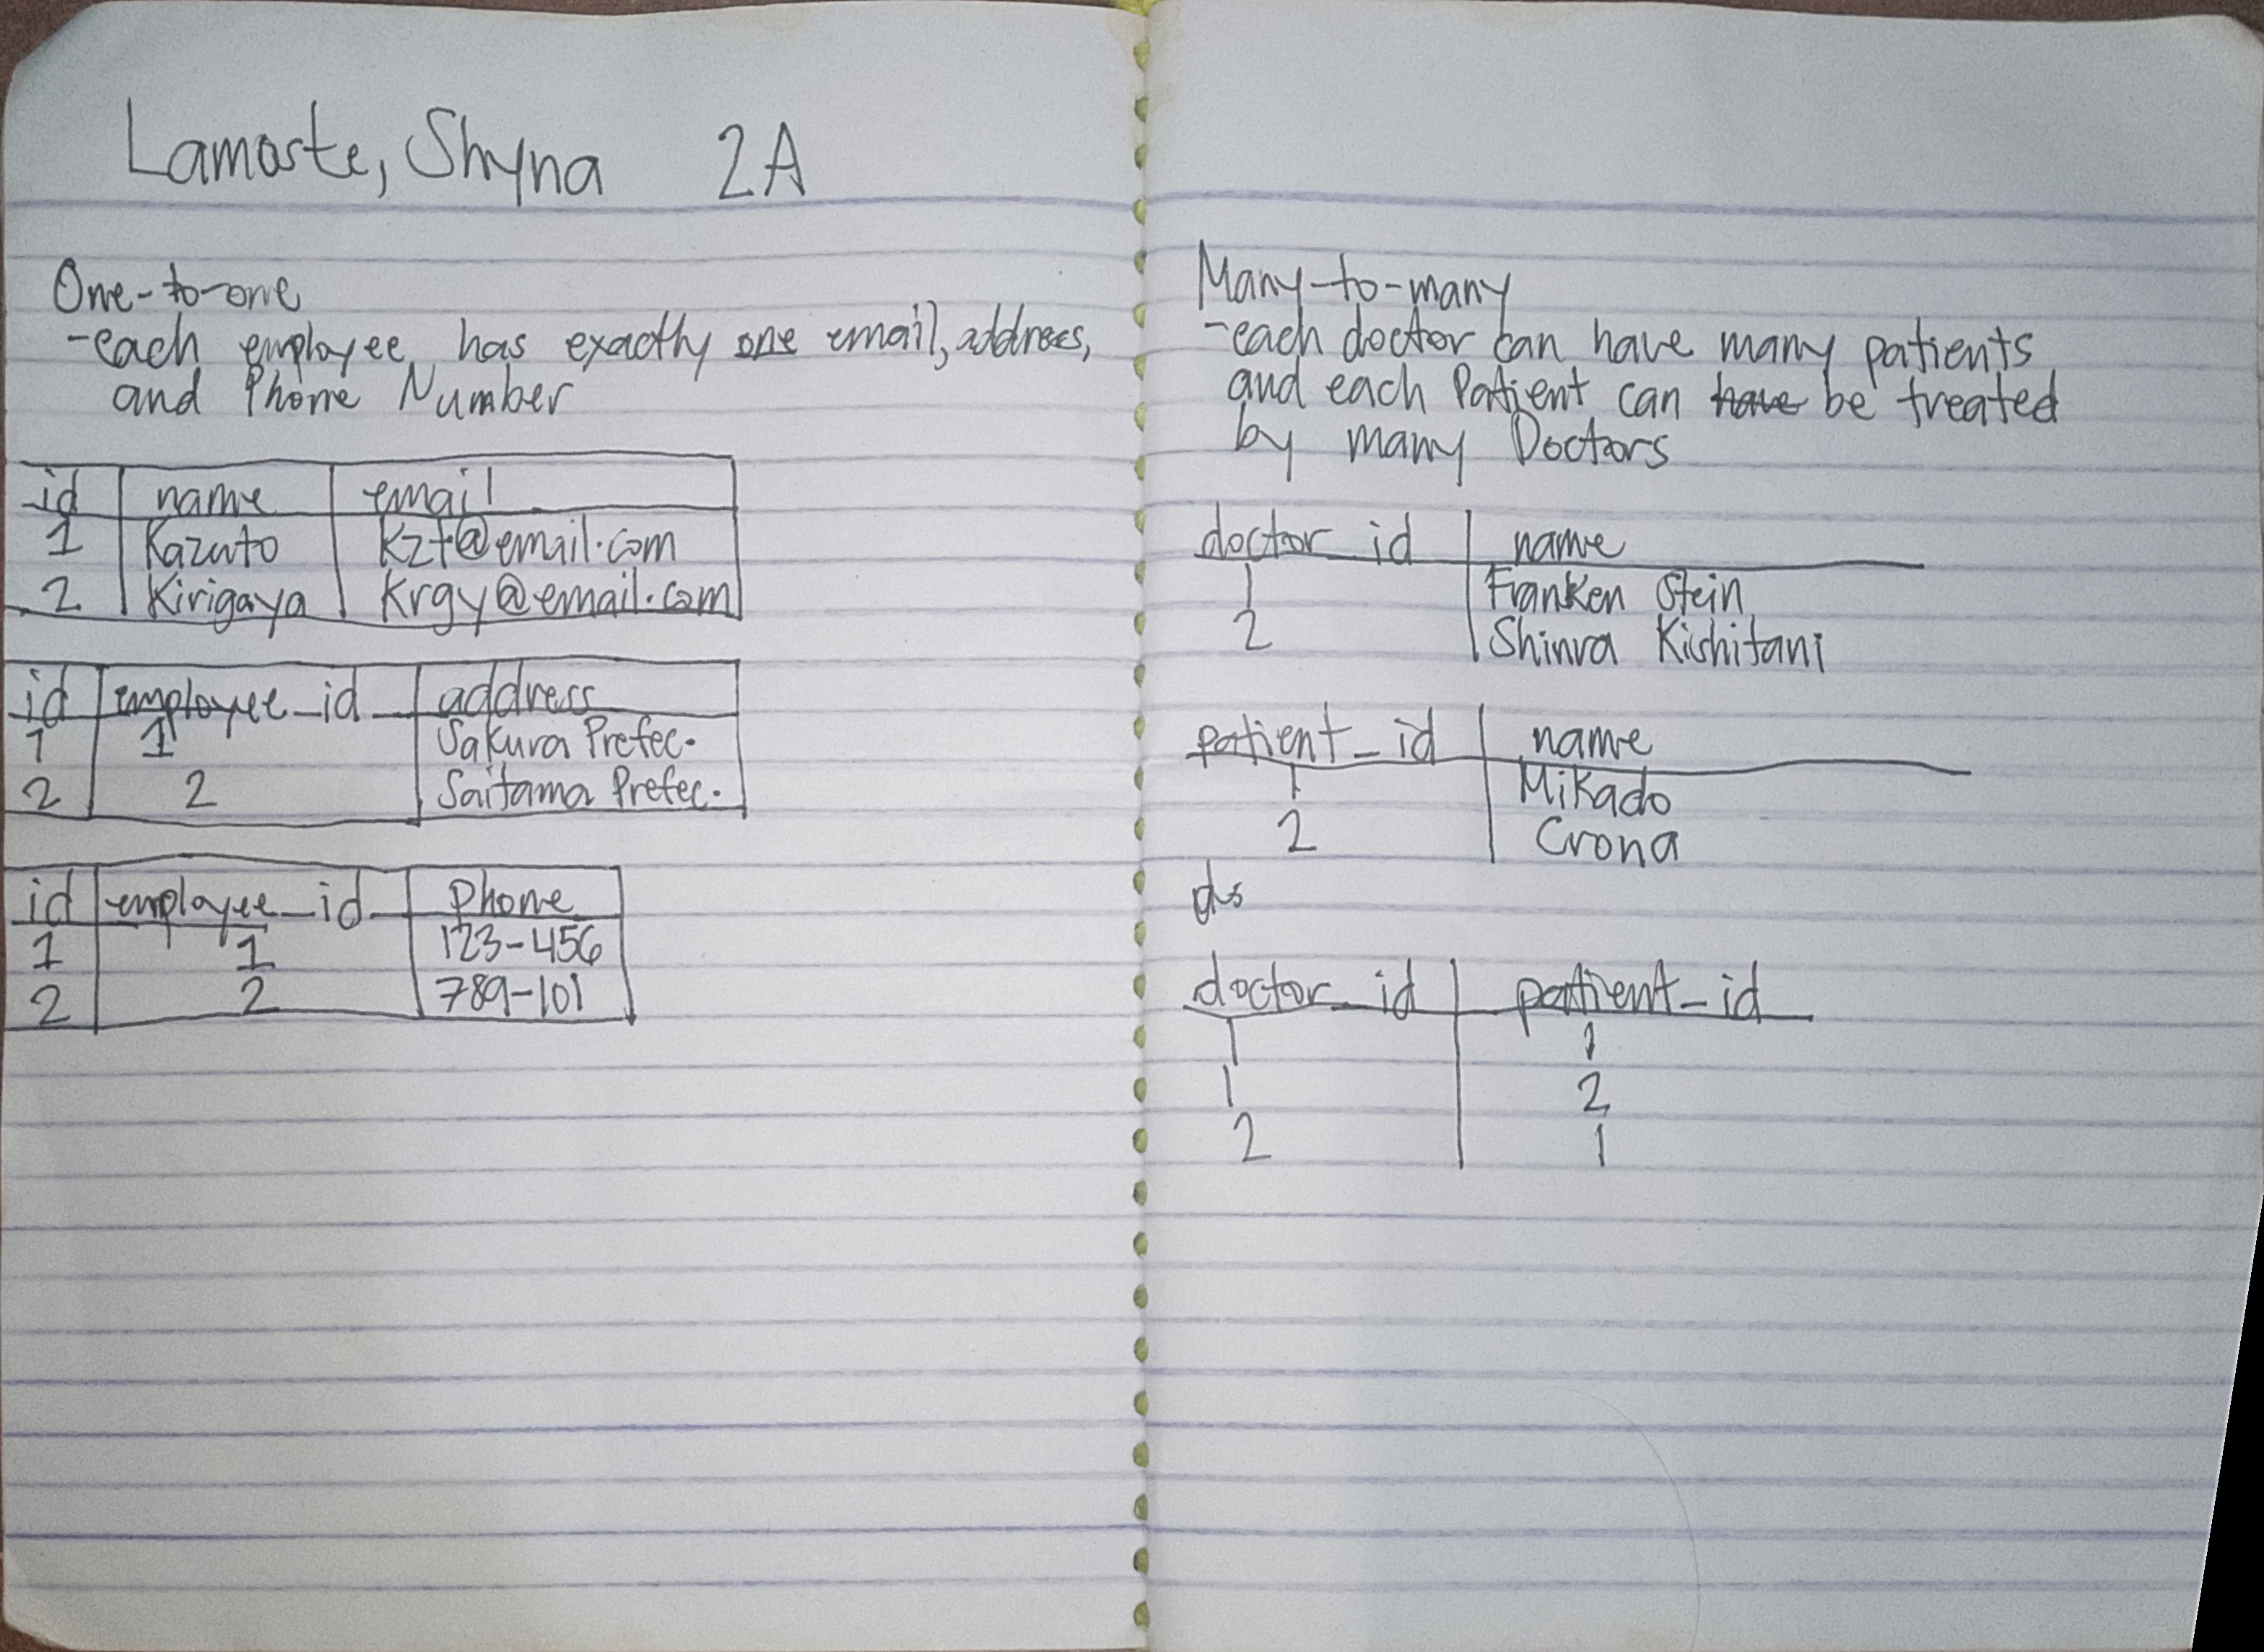 Lamoste, Shyna 2A
One-to-one
-each employee has exactly one email, address,
and Phone Number
id name email
1 Kazuto kzt@email.com
2 Kirigaya krgy@email.com
id employee_id address
1 1 Sakura Prefec.
2 2 Saitama Prefec.
id employee_id Phone
1 1 123-456
2 2 789-101
Many-to-many
-each doctor can have many patients
and each Patient can have be treated
by many Doctors
doctor_id name
1 Franken Stein
2 Shinra Kishitani
patient_id name
1 Mikado
2 Crona
ds
doctor_id patient_id
1 1
1 2
2 1